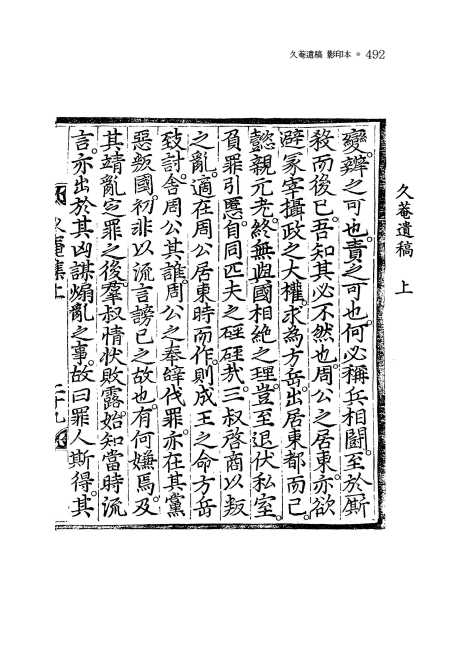 久菴遺稿 影印本 ● 492
久菴遺稿 上
變。辨之可也。責之可也。何必稱兵相鬪。至於厮
殺而後已。吾知其必不然也。周公之居東。亦欲
避冢宰攝政之大權。求為方岳。出居東都而已。
懿親元老。終無與國相絶之理。豈至退伏私室。
負罪引慝。自同匹夫之硜硜㢤。三叔啓商以叛
之亂。適在周公居東時而作。則成王之命方岳
致討。舍周公其誰。周公之奉辭伐罪。亦在其黨
惡叛國。初非以流言謗已之故也。有何嫌焉。及
其靖亂㝎罪之後。羣叔情状敗露。始知當時流
言。亦出於其凶謀煽亂之事。故曰罪人斯得。其
久菴集上 二十九